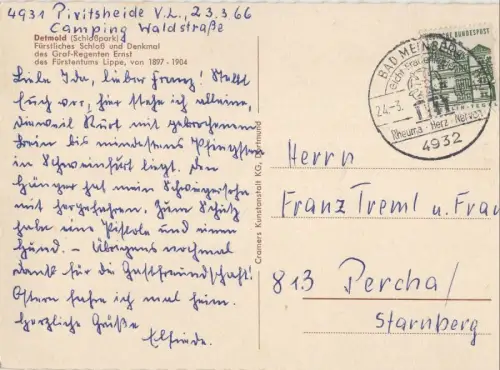 4931 Pivitsheide V.L., 23.3.66
Camping Waldstraße
Detmold (Schloßpark)
Fürstliches Schloß und Denkmal
des Graf-Regenten Ernst
des Fürstentums Lippe, von 1897 - 1904
Liebe Ida, lieber Franz! Stellt
Euch vor, hier stehe ich alleine,
dieweil Kurt mit gebrochenem
Bein bis mindestens Pfingsten
in Schweinfurt liegt. Den
Hänger hat mein Schwiegersohn
mit hergefahren. Zum Schutz
habe eine Pistole und einen
Hund. - Übrigens nochmal
Dank für die Gastfreundschaft!
Ostern fahre ich mal heim.
Herzliche Grüße
Elfriede.
Cramers Kunstanstalt KG, Dortmund
BAD MEINBERG
24.-3.
Rheuma · Herz · Nerven
4932
DEUTSCHE BUNDESPOST
Herrn
Franz Treml u. Frau
813 Percha/
Starnberg